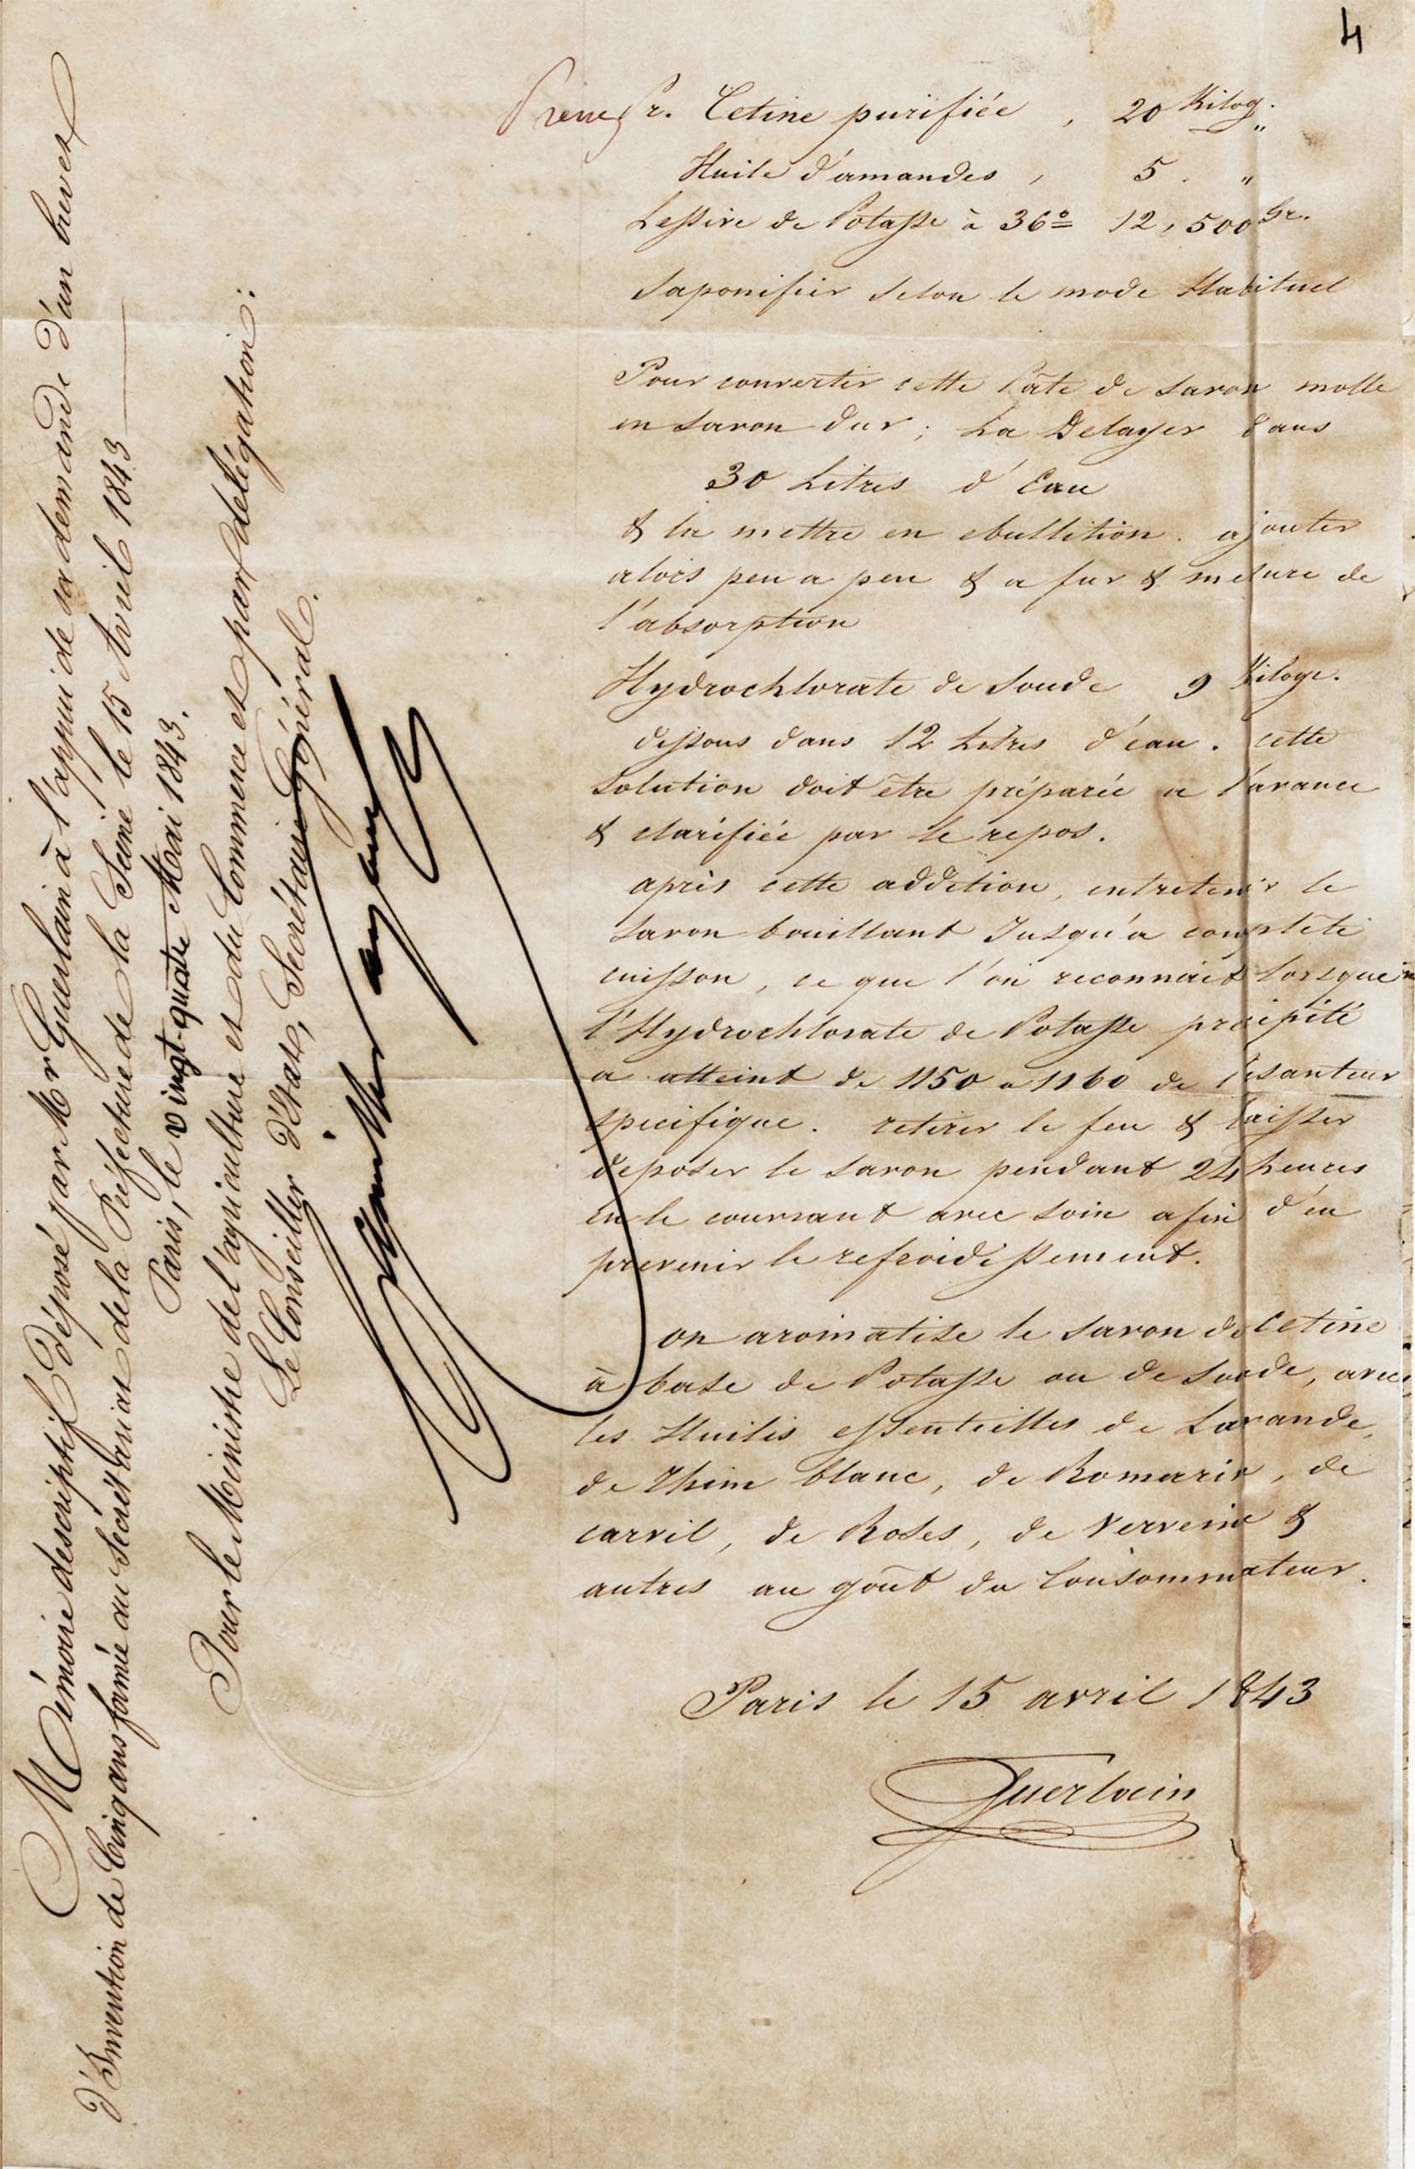 4
Prenez Pr. Cetine purifiée , 20 Kilog.
Huile d'amandes , 5 . "
Lessive de Potasse à 36° 12,500 Gr.
Saponifier selon le mode Habituel
Pour convertir cette Pâte de savon molle
en savon dur ; La Delayer dans
30 Litres d'Eau
& la mettre en ebullition . ajouter
alors peu a peu & a fur & mesure de
l'absorption
Hydrochlorate de Soude 9 Kilogr.
dissous dans 12 Litres d'eau . cette
solution doit être préparée a l'avance
& clarifiée par le repos .
après cette addition , entretenir le
savon bouillant Jusqu'a complète
cuisson , ce que l'on reconnait lorsque
l'Hydrochlorate de Potasse précipité
a atteint de 1150 a 1160 de Pesanteur
specifique . retirer le feu & laisser
deposer le savon pendant 24 heures
en le couvrant avec soin afin d'en
prevenir le refroidissement .
on aromatise le savon de Cetine
à base de Potasse ou de Soude , avec
les Huiles essentielles de Lavande ,
de Thim blanc , de Romarin , de
carvil , de Roses , de Verveine &
autres au goût du Consommateur .
Paris le 15 avril 1843
Guerlain
Mémoire descriptif déposé par Mr Guerlain à l'appui de sa demande d'un brevet
d'Invention de Cinq ans formée au Secrétariat de la Préfecture de la Seine le 15 Avril 1843
Paris, le vingt-quatre Mai 1843.
Pour le Ministre de l'agriculture et du Commerce et par délégation :
Le Conseiller d'État, Secrétaire Général.